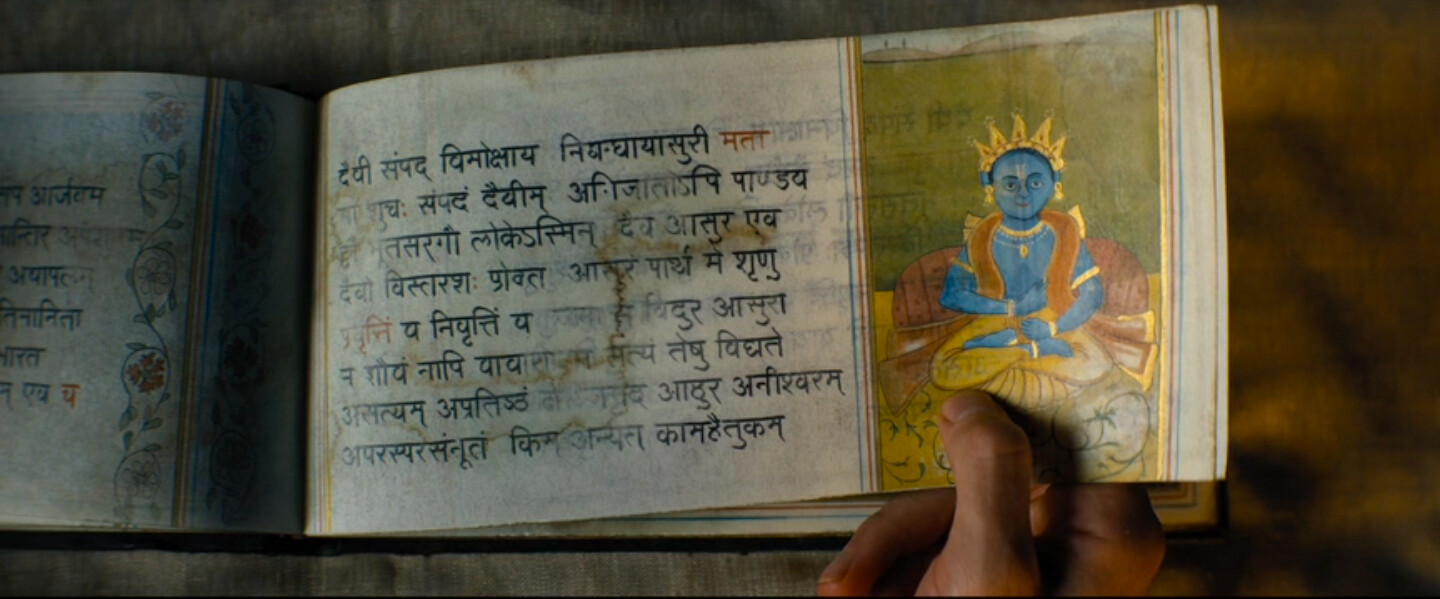 आर्जवम
अचापलम्
भारत
एव च
दैवी संपद् विमोक्षाय निबन्धायासुरी मता
शुचः संपदं दैवीम् अभिजातोऽपि पाण्डव
लोकेऽस्मिन् दैव आसुर एव
दैवो विस्तरशः प्रोक्त आसुरं पार्थ मे शृणु
प्रवृत्तिं च निवृत्तिं च विदुर आसुरा
न शौचं नापि चाचारो न सत्यं तेषु विद्यते
असत्यम् अप्रतिष्ठं ते जगद आहुर अनीश्वरम्
अपरस्परसंभूतं किम् अन्यत् कामहैतुकम्